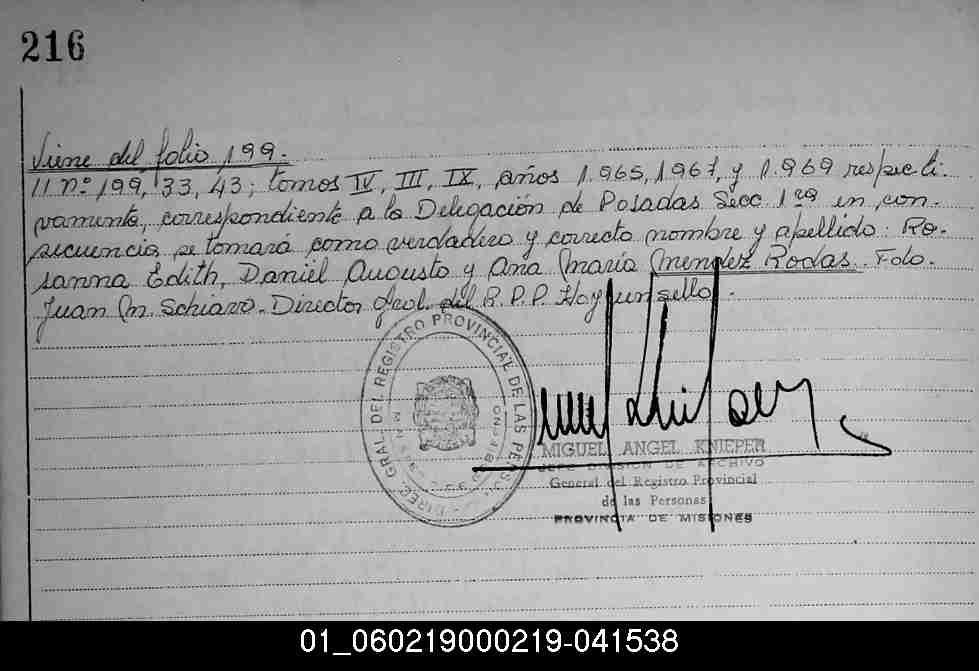 216
Viene del folio 199.
11 nº 199, 33, 43; tomos IV, III, IX, años 1.965, 1.967, y 1.969 respecti-
vamente, correspondiente a la Delegación de Posadas Secc 1ra en con-
secuencia se tomará como verdadero y correcto nombre y apellido: Ro-
sanna Edith, Daniel Augusto y Ana María Mendez Rodas. Fdo.
Juan M. Schiavo. Director Gral. del R.P.P. Hay un sello.
DIREC. GRAL. DEL REGISTRO PROVINCIAL DE LAS PERSO.
MISIONES
MIGUEL ANGEL KNIEPER
JEFE DIVISION DE ARCHIVO
General del Registro Provincial
de las Personas
PROVINCIA DE MISIONES
01_060219000219-041538